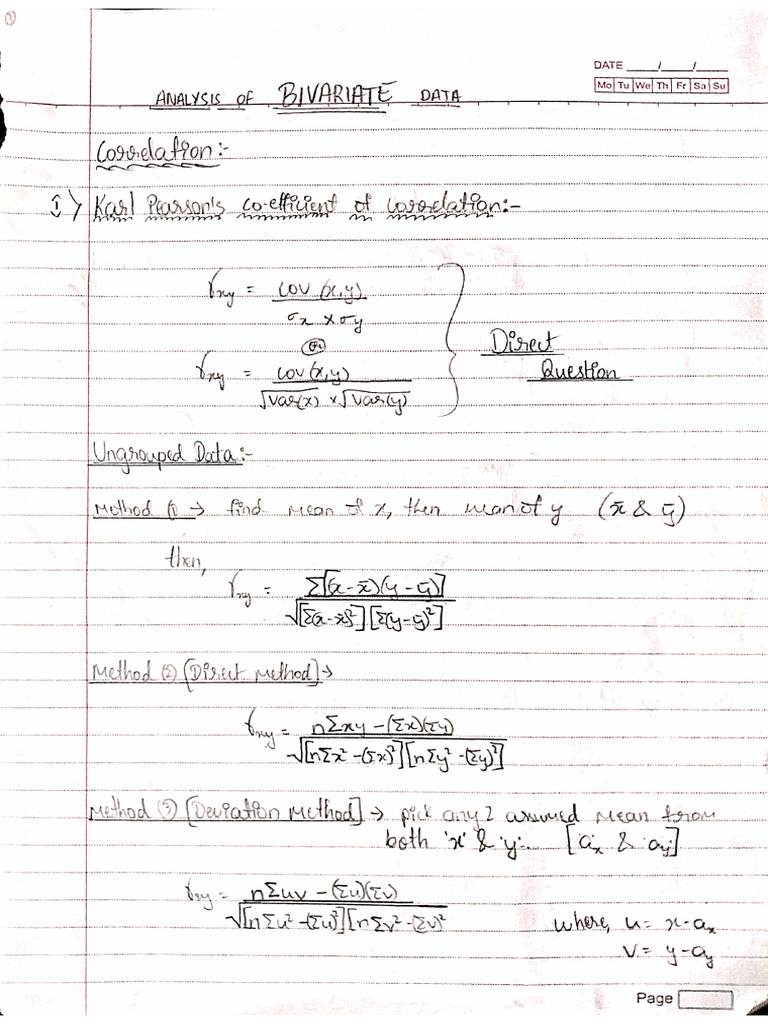 ①
DATE ___/___/___
Mo Tu We Th Fr Sa Su
ANALYSIS OF BIVARIATE DATA
Correlation:-
i> Karl Pearson's co-efficient of correlation:-
r_xy = cov (x,y) / σx × σy
(or)
r_xy = cov(x,y) / √Var(x) × √Var(y)
Direct
Question
Ungrouped Data:-
Method ① → find mean of x, then mean of y (x̄ & ȳ)
then,
r_xy = Σ[(x-x̄)(y-ȳ)] / √[Σ(x-x̄)²][Σ(y-ȳ)²]
Method ② [Direct Method] →
r_xy = nΣxy - (Σx)(Σy) / √[nΣx² - (Σx)²][nΣy² - (Σy)²]
Method ③ [Deviation Method] → pick any 2 assumed mean from
both 'x' & 'y'... [aₓ & a_y]
r_xy = nΣuv - (Σu)(Σv) / √[nΣu² - (Σu)²][nΣv² - (Σv)²
where, u = x-aₓ
v = y-a_y
Page